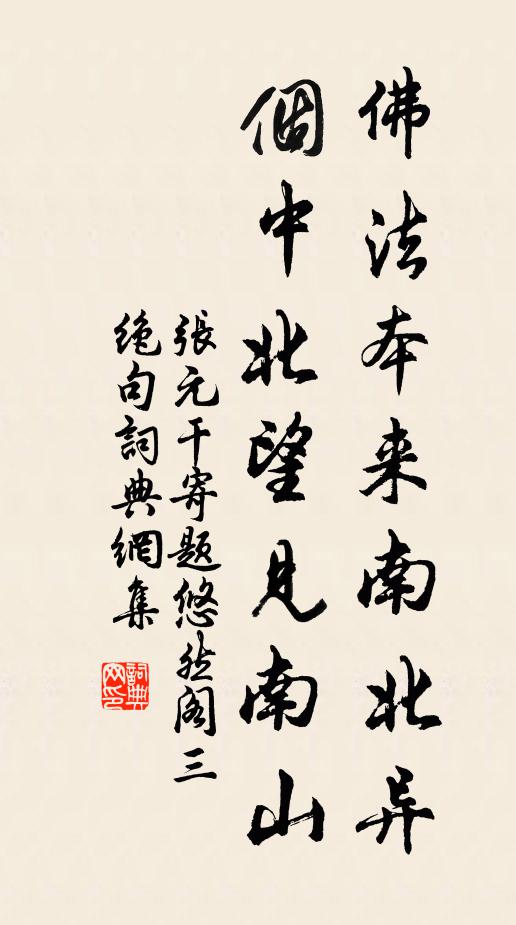 佛法本来南北异
個中北望見南山
張元干寄题悠然阁三
絶句詞典網集
詞典
网印